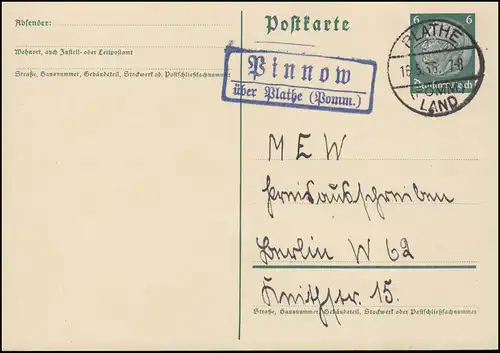 Absender:
Wohnort, auch Zustell- oder Leitpostamt
Straße, Hausnummer, Gebäudeteil, Stockwerk od. Postschließfachnummer
Postkarte
6 6
PLATHE
(POMM)
LAND
Pinnow
über Plathe (Pomm.)
MEW
Preisausschreiben
Berlin W 62
Keithstr. 15.
Straße, Hausnummer, Gebäudeteil, Stockwerk oder Postschließfachnummer